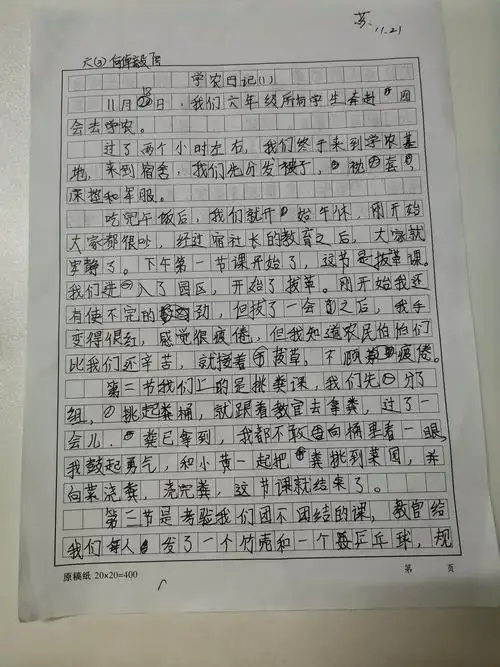 11.21
六(3)
学农日记(1)
11月18日，我们六年级所有学生奔赴园
会去学农。
过了两个小时左右，我们终于来到学农基
地，来到宿舍，我们先分发被子，枕套，
床控和军服。
吃完午饭后，我们就开始午休，刚开始
大家都很吵，经过宿社长的教育之后，大家就
安静了。下午第一节课开始了，这节是拔草课。
我们进入了园区，开始了拔草。刚开始我还
有使不完的劲，但拔了一会之后，我手
变得很红，感觉很疲倦，但我知道农民伯伯们
比我们还辛苦，就接着拔草，不顾疲倦。
第二节我们上的是挑粪课，我们先分了
组，挑起粪桶，就跟着教官去拿粪，过了一
会儿，粪已拿到，我都不敢向桶里看一眼，
我鼓起勇气，和小黄一起把粪挑到菜园，并
向菜浇粪，浇完粪，这节课就结束了。
第三节是考验我们团不团结的课，教官给
我们每人发了一个竹壳和一个乒乓球，规
原稿纸 20×20=400
第 页